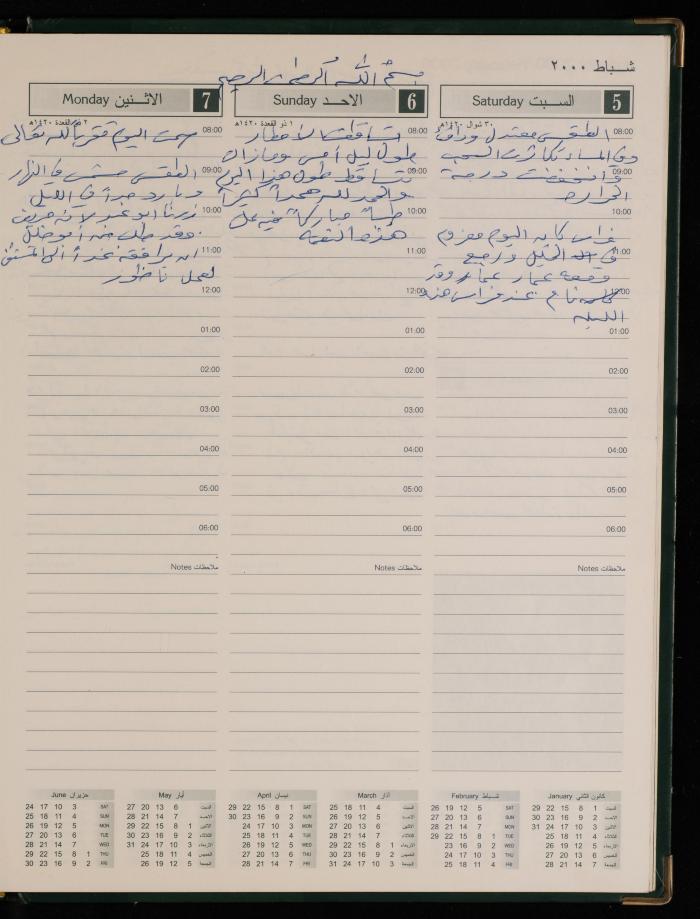 شباط ٢٠٠٠
بسم الله الرحمن الرحيم
5 السبت Saturday
٣٠ شوال ١٤٢٠هـ
08:00 الطقس معتدل ودافئ
وفي المساء تكاثرت السحب
09:00 وانخفضت درجة
الحرارة
10:00
غراس كان اليوم معزوم
11:00 في الخليل ورجع
ومعه عمار عمار وقد
12:00 نام عند فراس هذه
الليلة
01:00
02:00
03:00
04:00
05:00
06:00
ملاحظات Notes
6 الاحد Sunday
١ ذو القعدة ١٤٢٠هـ
08:00 تساقطت الأمطار
طول ليل أمس وما زالت
09:00 تتساقط طول هذا اليوم
والحمد لله حمداً كثيراً
10:00 طيباً مباركاً فيه على
هذه النعمة
11:00
12:00
01:00
02:00
03:00
04:00
05:00
06:00
ملاحظات Notes
7 الاثنين Monday
٢ ذو القعدة ١٤٢٠هـ
08:00 صمت اليوم تقرباً لله تعالى
09:00 الطقس مشمس في النهار
وبارد جداً في الليل
10:00 زرنا ابو عمر لانه مريض
وقد طلب منه ابو خليل
11:00 ان يرافقه غداً الى المستشفى
لعمل ناظور
12:00
01:00
02:00
03:00
04:00
05:00
06:00
ملاحظات Notes
كانون الثاني January
السبت 1 8 15 22 29
الاحد 2 9 16 23 30
الاثنين 3 10 17 24 31
الثلاثاء 4 11 18 25
الاربعاء 5 12 19 26
الخميس 6 13 20 27
الجمعة 7 14 21 28
شباط February
SAT 5 12 19 26
SUN 6 13 20 27
MON 7 14 21 28
TUE 1 8 15 22 29
WED 2 9 16 23
THU 3 10 17 24
FRI 4 11 18 25
آذار March
السبت 4 11 18 25
الاحد 5 12 19 26
الاثنين 6 13 20 27
الثلاثاء 7 14 21 28
الاربعاء 1 8 15 22 29
الخميس 2 9 16 23 30
الجمعة 3 10 17 24 31
نيسان April
SAT 1 8 15 22 29
SUN 2 9 16 23 30
MON 3 10 17 24
TUE 4 11 18 25
WED 5 12 19 26
THU 6 13 20 27
FRI 7 14 21 28
أيار May
السبت 6 13 20 27
الاحد 7 14 21 28
الاثنين 1 8 15 22 29
الثلاثاء 2 9 16 23 30
الاربعاء 3 10 17 24 31
الخميس 4 11 18 25
الجمعة 5 12 19 26
حزيران June
SAT 3 10 17 24
SUN 4 11 18 25
MON 5 12 19 26
TUE 6 13 20 27
WED 7 14 21 28
THU 1 8 15 22 29
FRI 2 9 16 23 30